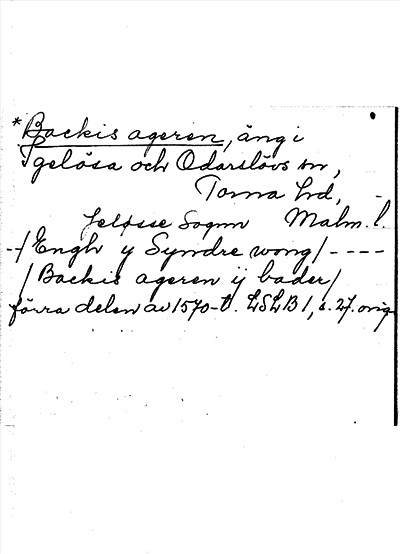 *Backis ageren, äng i
Igelösa och Odarslövs snr,
Torna hd,
Jeløsse Sognn Malm. l.
--/Engh y Syndre wong/----
/Backis ageren ij bader/
förra delen av 1570-t. LSLB 1, s. 27. orig